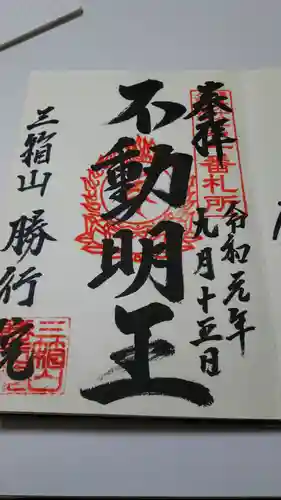 奉拝
令和元年
九月十五日
不動明王
三箱山 勝行院
番札所
三箱山